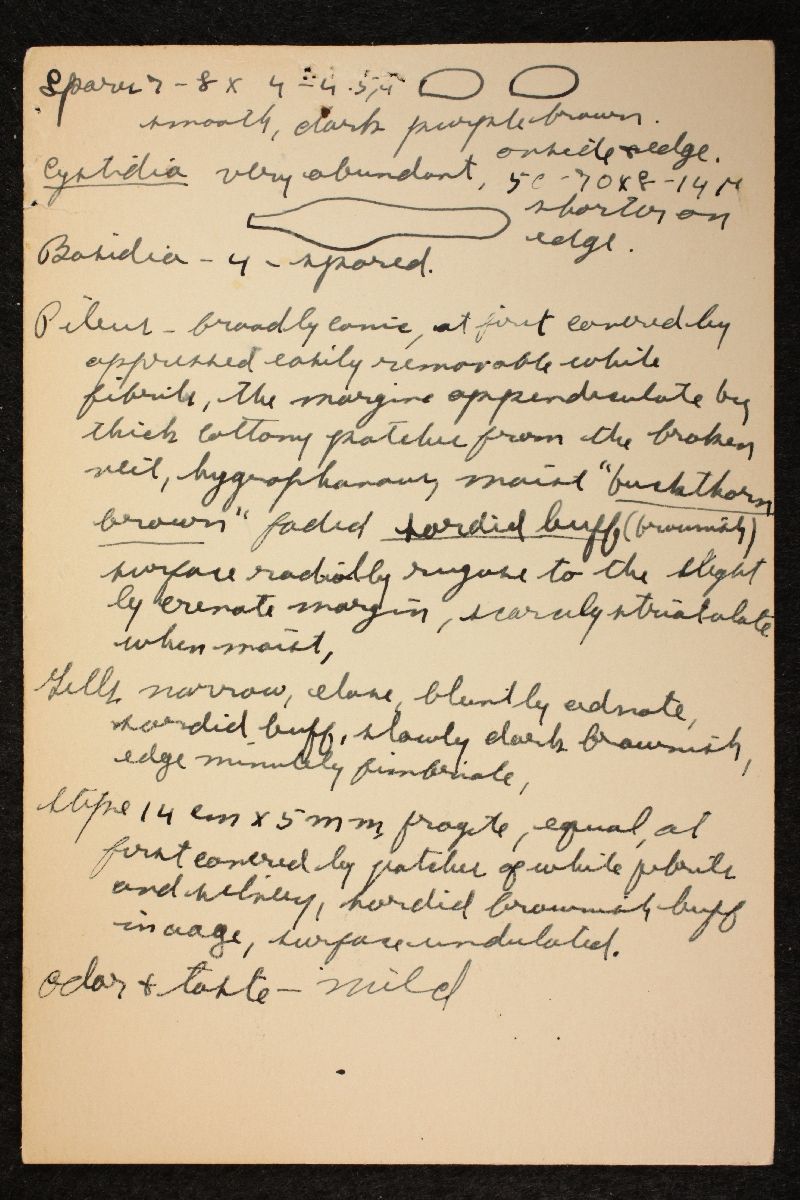 Spores 7-8 x 4-4.5µ
smooth, dark purple brown.
on side & edge.
Cystidia very abundant, 50-70x8-14µ
shorter on
edge.
Basidia - 4 - spored.
Pileus - broadly conic, at first covered by
appressed easily removable white
fibrils, the margine appendiculate by
thick cottony patches from the broken
veil, hygrophanous moist "buckthorn
brown" faded sordid buff (brownish)
surface radially rugose to the slight
ly crenate margin, scarcely striatulate
when moist,
Gills narrow, close, bluntly adnate,
sordid buff, slowly dark brownish,
edge minutely fimbriate,
Stipe 14 cm x 5 mm, fragile, equal, at
first covered by patches of white fibrils
and silvery, sordid brownish buff
in aage, surface undulated.
Odor & taste - mild